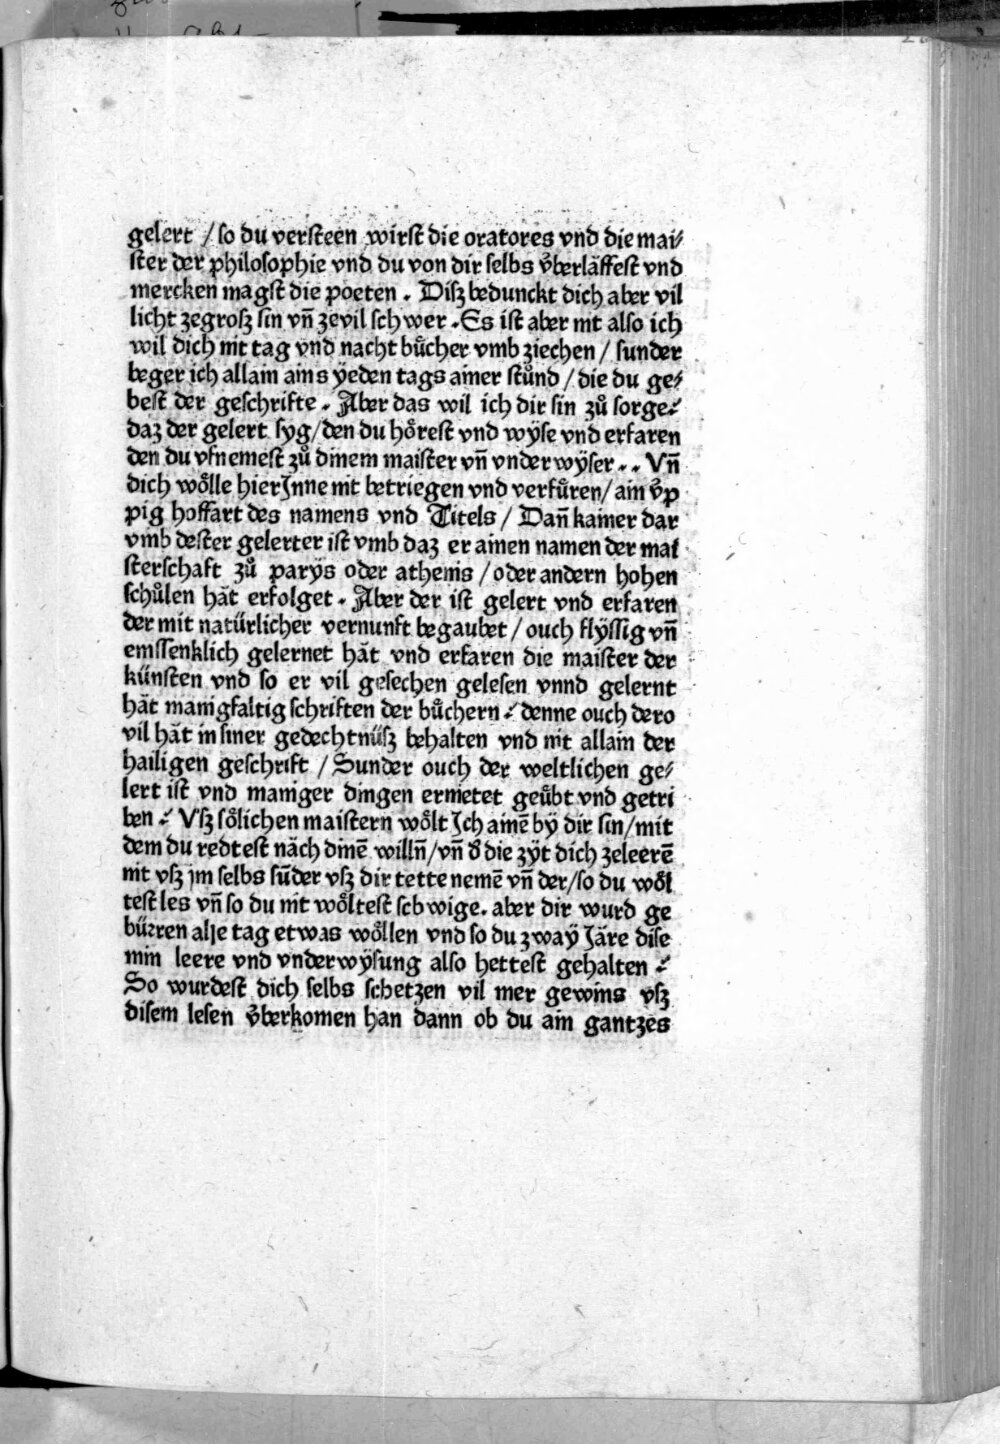 gelert / so du versteen wirst die oratores vnd die mai⸗
ster der philosophie vnd du von dir selbs v̊berläffest vnd
mercken magst die poeten . Disz bedunckt dich aber vil
licht zegrosz sin vn̄ zevil schwer . Es ist aber nit also ich
wil dich nit tag vnd nacht bůcher vmb ziechen / sunder
beger ich allain ains ÿeden tags ainer stůnd / die du ge⸗
best der geschrifte . Aber das wil ich dir sin zů sorge⸗
daz der gelert syg / den du hőrest vnd wÿse vnd erfaren
den du vfnemest zů dinem maister vn̄ vnderwÿser . . Vn̄
dich wőlle hier Jnne nit betriegen vnd verfůren / ain v̊p
pig hoffart des namens vnd Titels / Dan̄ kainer dar
vmb dester gelerter ist vmb daz er ainen namen der mai
sterschaft zů parÿs oder athenis / oder andern hohen
schůlen hăt erfolget . Aber der ist gelert vnd erfaren
der mit natürlicher vernunft begaubet / ouch flÿssig vn̄
emssenklich gelernet hăt vnd erfaren die maister der
künsten vnd so er vil gesechen gelesen vnnd gelernt
hăt manigfaltig schriften der bůchern ⸗ denne ouch dero
vil hăt in siner gedechtnüsz behalten vnd nit allain der
hailigen geschrift / Sunder ouch der weltlichen ge⸗
lert ist vnd maniger dingen ernietet geůbt vnd getri
ben ⸗ Vsz sőlichen maistern wőlt Jch ainē bÿ dir sin / mit
dem du redtest năch dinē willn̄ / vn̄ d' die zÿt dich zeleerē
nit vsz jm selbs sūder vsz dir tette nemē vn̄ der / so du wől
test les vn̄ so du nit wőltest schwige . aber dir wurd ge
bürren alle tag etwas wőllen vnd so du zwaÿ Jăre dise
min leere vnd vnderwÿsung also hettest gehalten ⸗
So wurdest dich selbs schetzen vil mer gewins vsz
disem lesen v̊berkomen han dann ob du ain gantzes